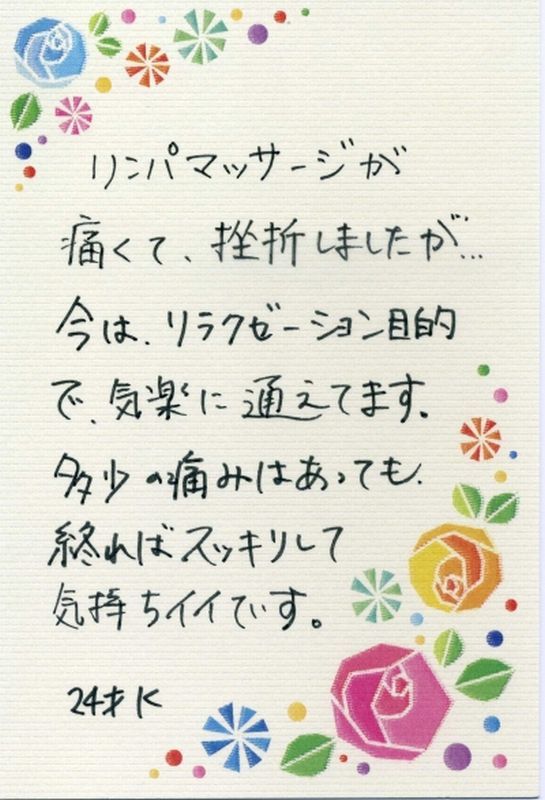 リンパマッサージが
痛くて、挫折しましたが…
今は、リラクゼーション目的
で、気楽に通えてます。
多少の痛みはあっても、
終ればスッキリして
気持ちイイでいす。
24才 K